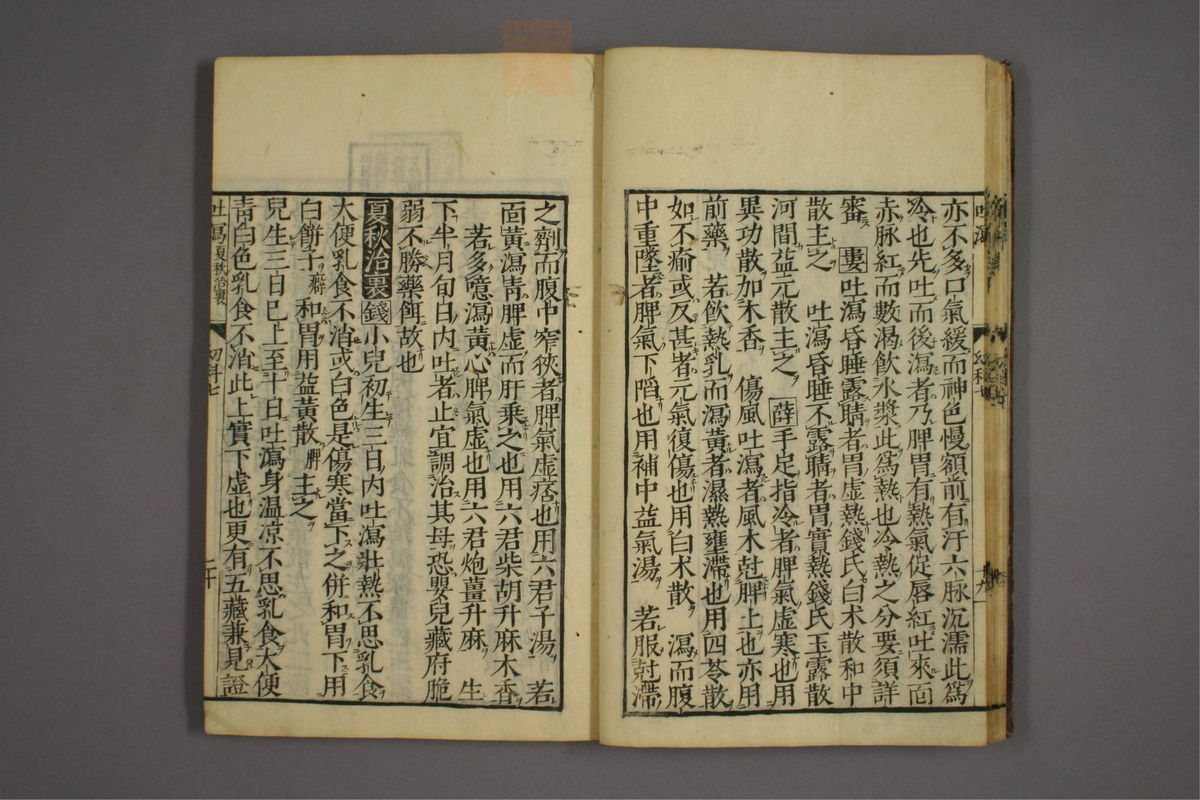 亦不多口氣緩而神色慢額前有汗六脉沉濡此爲
冷也先吐而後瀉者乃脾胃有熱氣促唇紅吐來面
赤脉紅而數渴飲水漿此爲熱也冷熱之分要須詳
審 婁吐瀉昏睡露睛者胃虚熱錢氏白术散和中
散主之 吐瀉昏睡不露睛者胃實熱錢氏玉露散
河間益元散主之 薛手足指冷者脾氣虚寒也用
異功散加木香 傷風吐瀉者風木尅脾土也亦用
前藥 若飲熱乳而瀉黄者濕熱壅滯也用四苓散
如不瘉或反甚者元氣復傷也用白术散 瀉而腹
中重墜者脾氣下陷也用補中益氣湯 若服尅滯
之劑而腹中窄狹者脾氣虚痞也用六君子湯 若
面黄瀉青脾虚而肝乗之也用六君柴胡升麻木香
若多噫瀉黄心脾氣虚也用六君炮薑升麻 生
下半月旬日内吐者止宜調治其母恐嬰兒藏府脆
弱不勝藥餌故也
夏秋治裏 錢小兒初生三日内吐瀉壯熱不思乳食
大便乳食不消或白色是傷寒當下之併和胃下用
白餅子癖和胃用益黄散脾主之
兒生三日已上至十日吐瀉身温凉不思乳食大便
青白色乳食不消此上實下虚也更有五藏兼見證
吐瀉 夏秋治裏 幼科七 二十